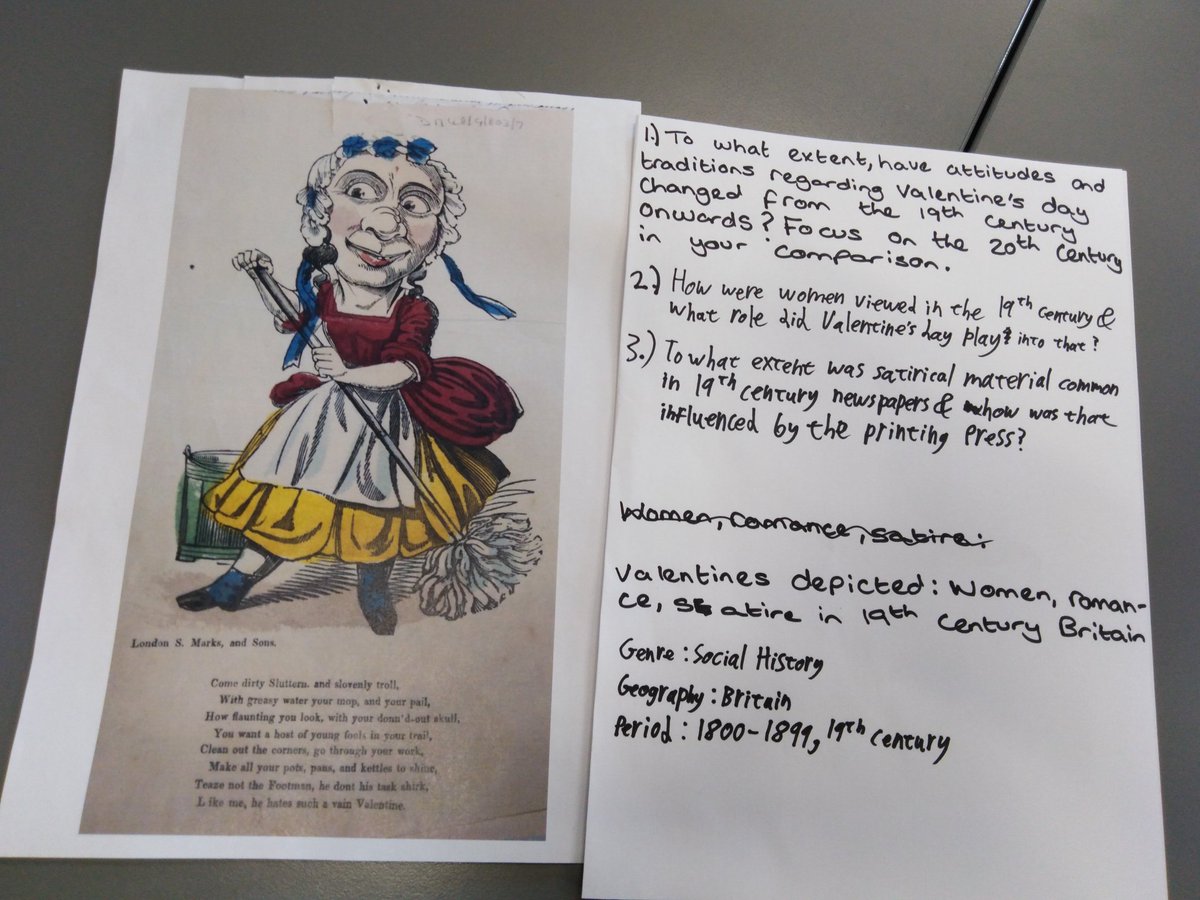 London S. Marks, and Sons.
Come dirty Sluttern. and slovenly troll,
With greasy water your mop, and your pail,
How flaunting you look, with your donn'd-out skull,
You want a host of young fools in your trail,
Clean out the corners, go through your work,
Make all your pots, pans, and kettles to shine,
Teaze not the Footman, he dont his task shirk,
Like me, he hates such a vain Valentine.
1.) To what extent, have attitudes and
traditions regarding Valentine's day
changed from the 19th century
onwards? Focus on the 20th Century
in your comparison.
2.) How were women viewed in the 19th century &
what role did Valentine's day play into that?
3.) To what extent was satirical material common
in 19th century newspapers & how was that
influenced by the printing press?
Women, romance, satire:
Valentines depicted: Women, roman-
ce, satire in 19th century Britain
Genre: Social History
Geography: Britain
Period: 1800-1899, 19th century